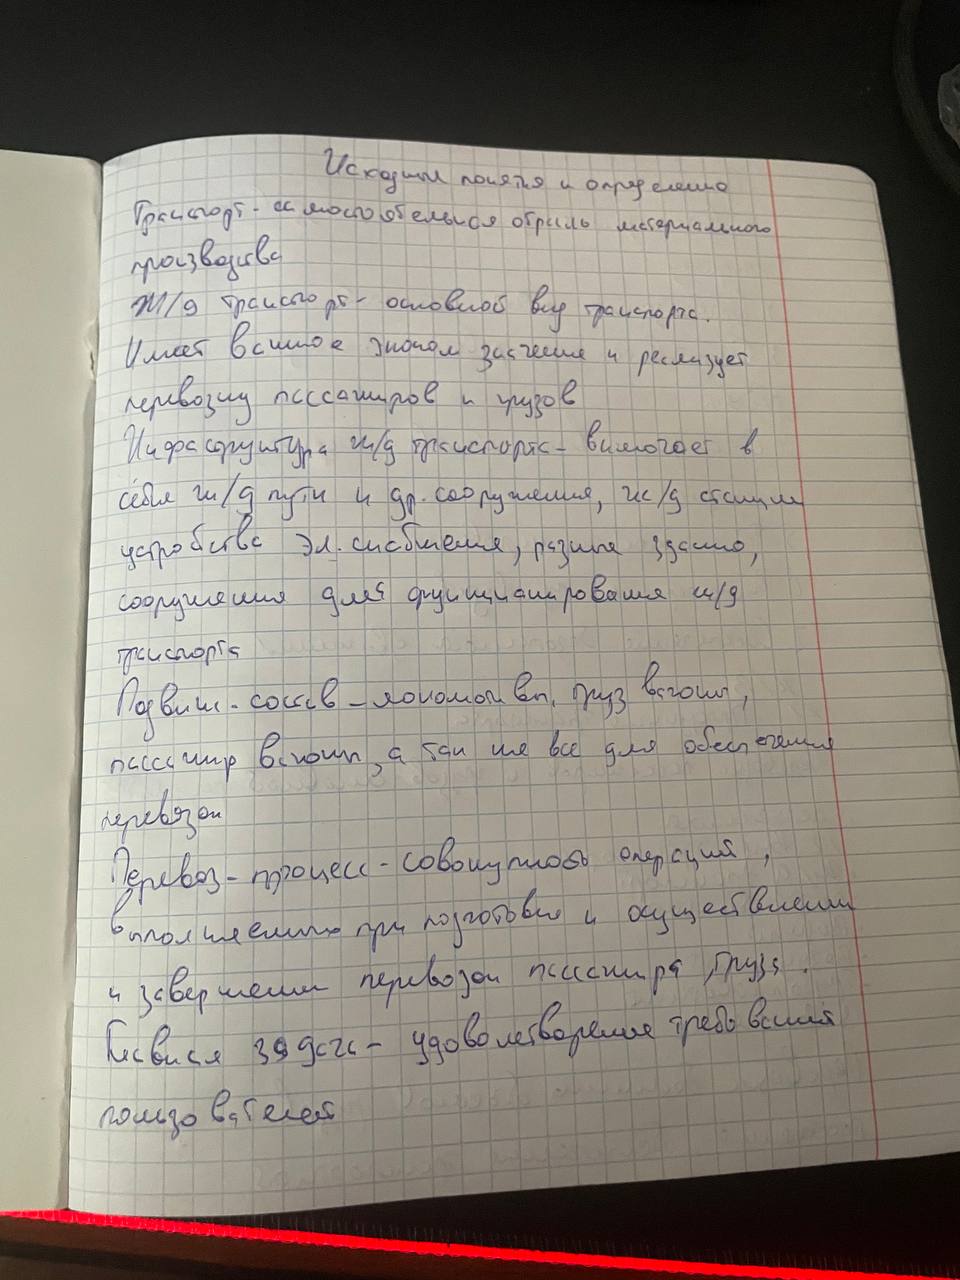 Исходным понятия и определению
Транспорт - самостоятельная отрасль материального
производства
Ж/д транспорт - основной вид транспорта.
Имеет важное эконом значение и реализует
перевозку пассажиров и грузов
Инфраструктура ж/д транспорта - включает в
себя ж/д пути и др. сооружения, ж/д станции
устройства эл. снабжения, разные здания,
сооружения для функционирования ж/д
транспорта
Подвиж. состав - локомотивы, груз вагоны,
пассажир вагоны, а так же все для обеспечения
перевозок
Перевоз - процесс - совокупность операций,
выполняемых при подготовке и осуществлении
и завершении перевозок пассажира, груза.
Главная задача - удовлетворение требований
пользователей